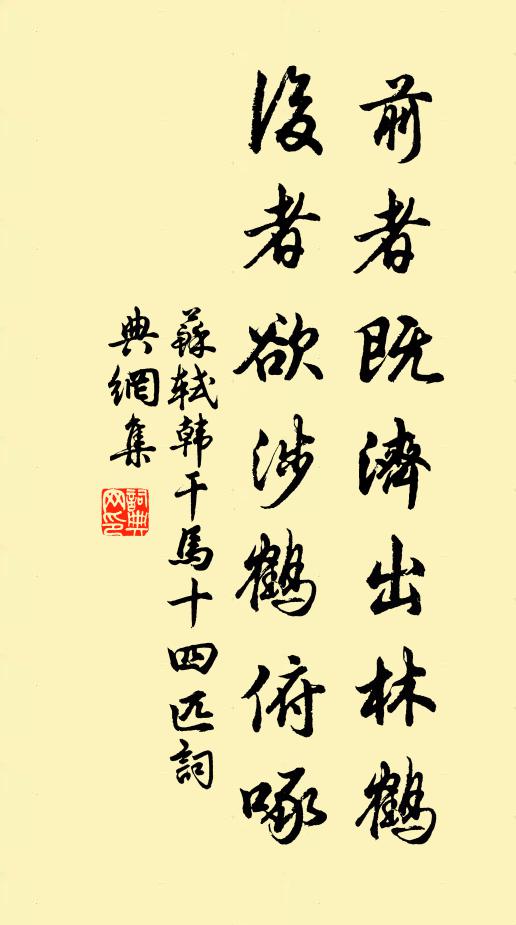 前者既濟出林鶴
後者欲涉鶴俯啄
蘇軾韓干馬十四匹詞
典網集
詞典網印